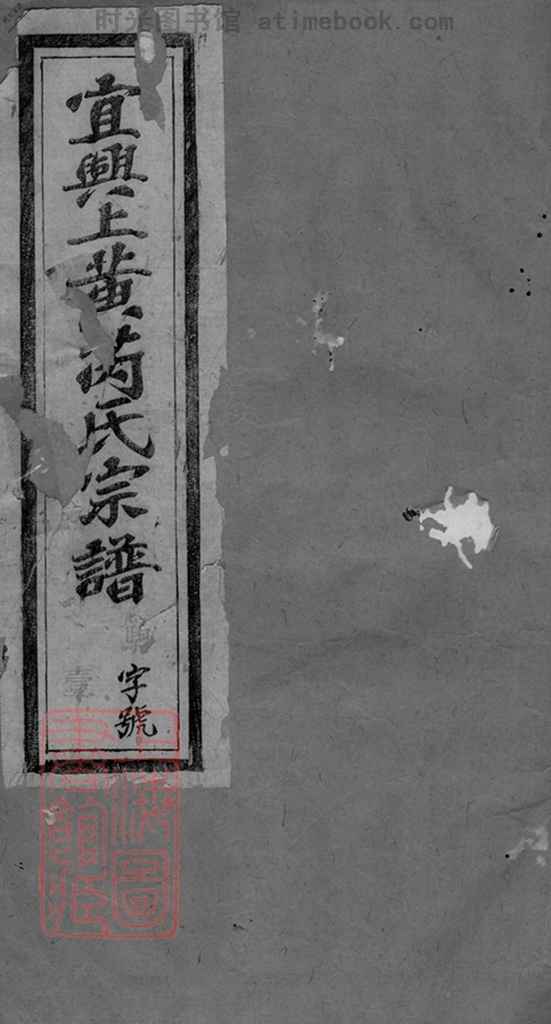 时光图书馆 atimebook.com
宜興上黄芮氏宗譜
字號
壹